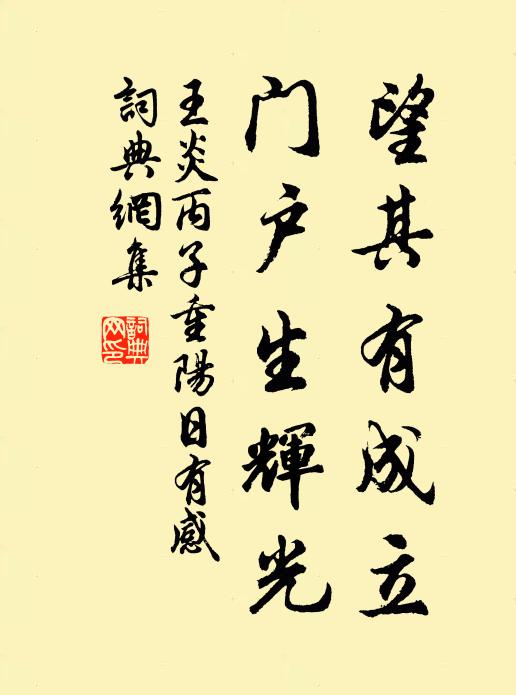 望其有成立
门户生輝光
王炎丙子重陽日有感
詞典網集
詞典网印